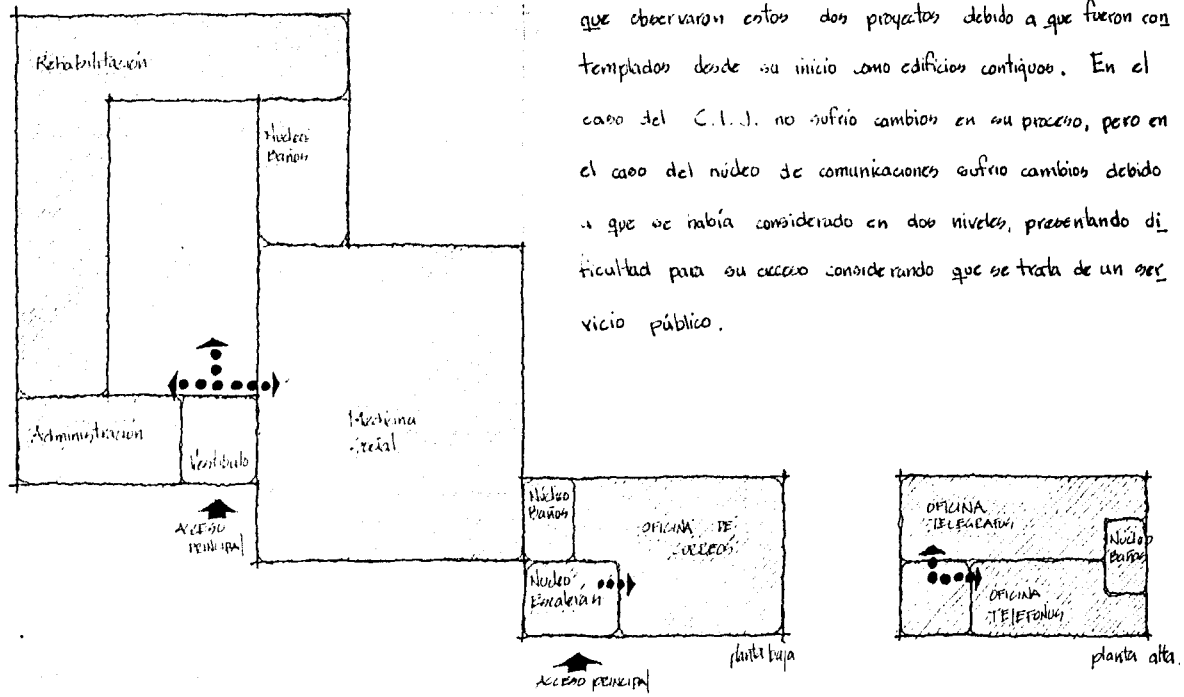 que observaron estos dos proyectos debido a que fueron con
templados desde su inicio como edificios contiguos. En el
caso del C.I.J. no sufrió cambios en su proceso, pero en
el caso del núcleo de comunicaciones sufrio cambios debido
a que se había considerado en dos niveles, presentando di
ficultad para su acceso considerando que se trata de un ser
vicio público.
Rehabilitación
Núcleo
Baños
Administración
Vestibulo
Medicina
Social
ACCESO
PRINCIPAL
Núcleo
Baños
OFICINA DE
CORREOS
Nucleo
Escaleras
planta baja
ACCESO PRINCIPAL
OFICINA
TELEGRAFOS
Nucleo
Baños
OFICINA
TELEFONOS
planta alta.